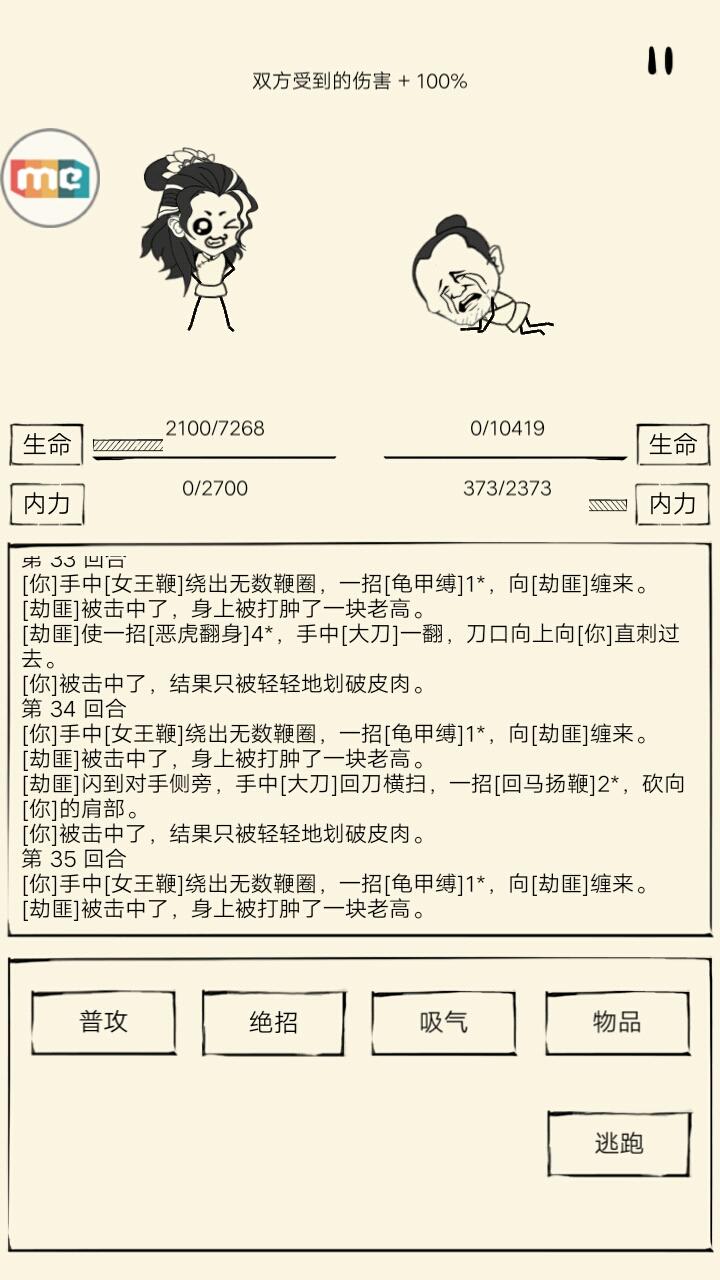 双方受到的伤害 + 100%
me
2100/7268
0/10419
生命
生命
0/2700
373/2373
内力
内力
第 33 回合
[你]手中[女王鞭]绕出无数鞭圈，一招[龟甲缚]1*，向[劫匪]缠来。
[劫匪]被击中了，身上被打肿了一块老高。
[劫匪]使一招[恶虎翻身]4*，手中[大刀]一翻，刀口向上向[你]直刺过
去。
[你]被击中了，结果只被轻轻地划破皮肉。
第 34 回合
[你]手中[女王鞭]绕出无数鞭圈，一招[龟甲缚]1*，向[劫匪]缠来。
[劫匪]被击中了，身上被打肿了一块老高。
[劫匪]闪到对手侧旁，手中[大刀]回刀横扫，一招[回马扬鞭]2*，砍向
[你]的肩部。
[你]被击中了，结果只被轻轻地划破皮肉。
第 35 回合
[你]手中[女王鞭]绕出无数鞭圈，一招[龟甲缚]1*，向[劫匪]缠来。
[劫匪]被击中了，身上被打肿了一块老高。
普攻
绝招
吸气
物品
逃跑